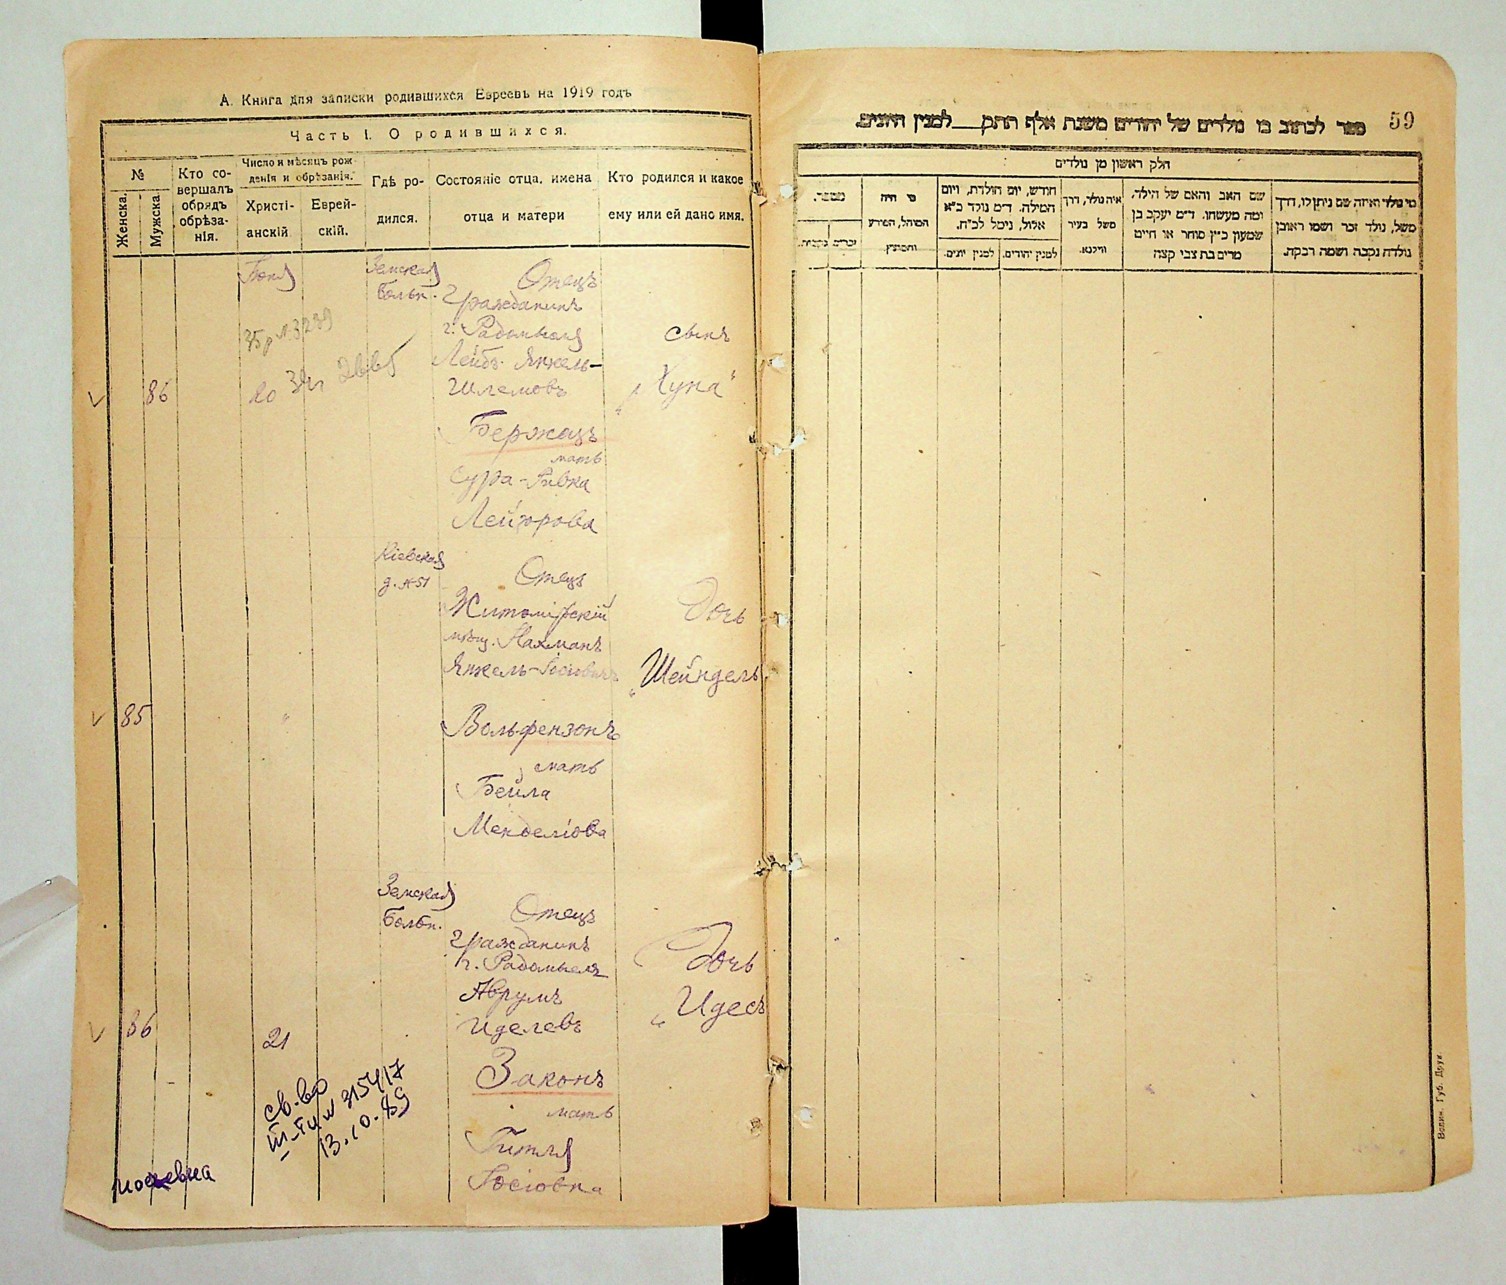 А. Книга для записки родившихся Евреевъ на 1919 годъ
Часть I. О родившихся.
№
Женска.
Мужска
Кто со-
вершалъ
обрядъ
обрѣза-
нія.
Число и мѣсяцъ рож-
денія и обрѣзанія.
Христі-
анскій
Еврей-
скій.
Гдѣ ро-
дился.
Состояніе отца, имена
отца и матери
Кто родился и какое
ему или ей дано имя.
86
20
Земская
Больн.
Отецъ
Гражданинъ
г. Радомысля
Лейбъ Янкель-
Шлемовъ
мать
Сура-Ривка
Лейзорова
сынъ
„Хуна"
85
"
Кіевская
д. №51
Отецъ
Житомірскій
мѣщ. Нахманъ
Янкель-Іосіовичъ
Вольфензонъ
мать
Бейла
Менделіова
Дочь
„Шейндель
86
21
Земская
Больн.
Отецъ
Гражданинъ
г. Радомысля
Аврумъ
Иделевъ
Законъ
мать
Гитля
Іосіовна
Дочь
„Идесъ
св-во
13.10.89
59
ספר לכתוב בו נולדים של יהודים משנת אלף תתק__למנין היונים.
חלק ראשון מן נולדים
מי נולד ואיזה שם ניתן לו, דרך
משל, נולד זכר ושמו ראובן
נולדת נקבה ושמה רבקה.
שם האב והאם של הילד,
ומה מעשהו. ד״מ יעקב בן
שמעון כ״ץ סוחר או חיים
מרים בת צבי קצה
איה נולד, דרך
משל בעיר
ווילנא.
חודש, יום הולדת, ויום
המילה. ד״מ נולד כ״א
אלול, ניכל לכ״ח.
למנין יהודים.
למנין יונים.
מי היה
המוהל, הפורע
והמוצץ.
מספר.
זכרים.
נקבות.
Волын. Губ. Друк.